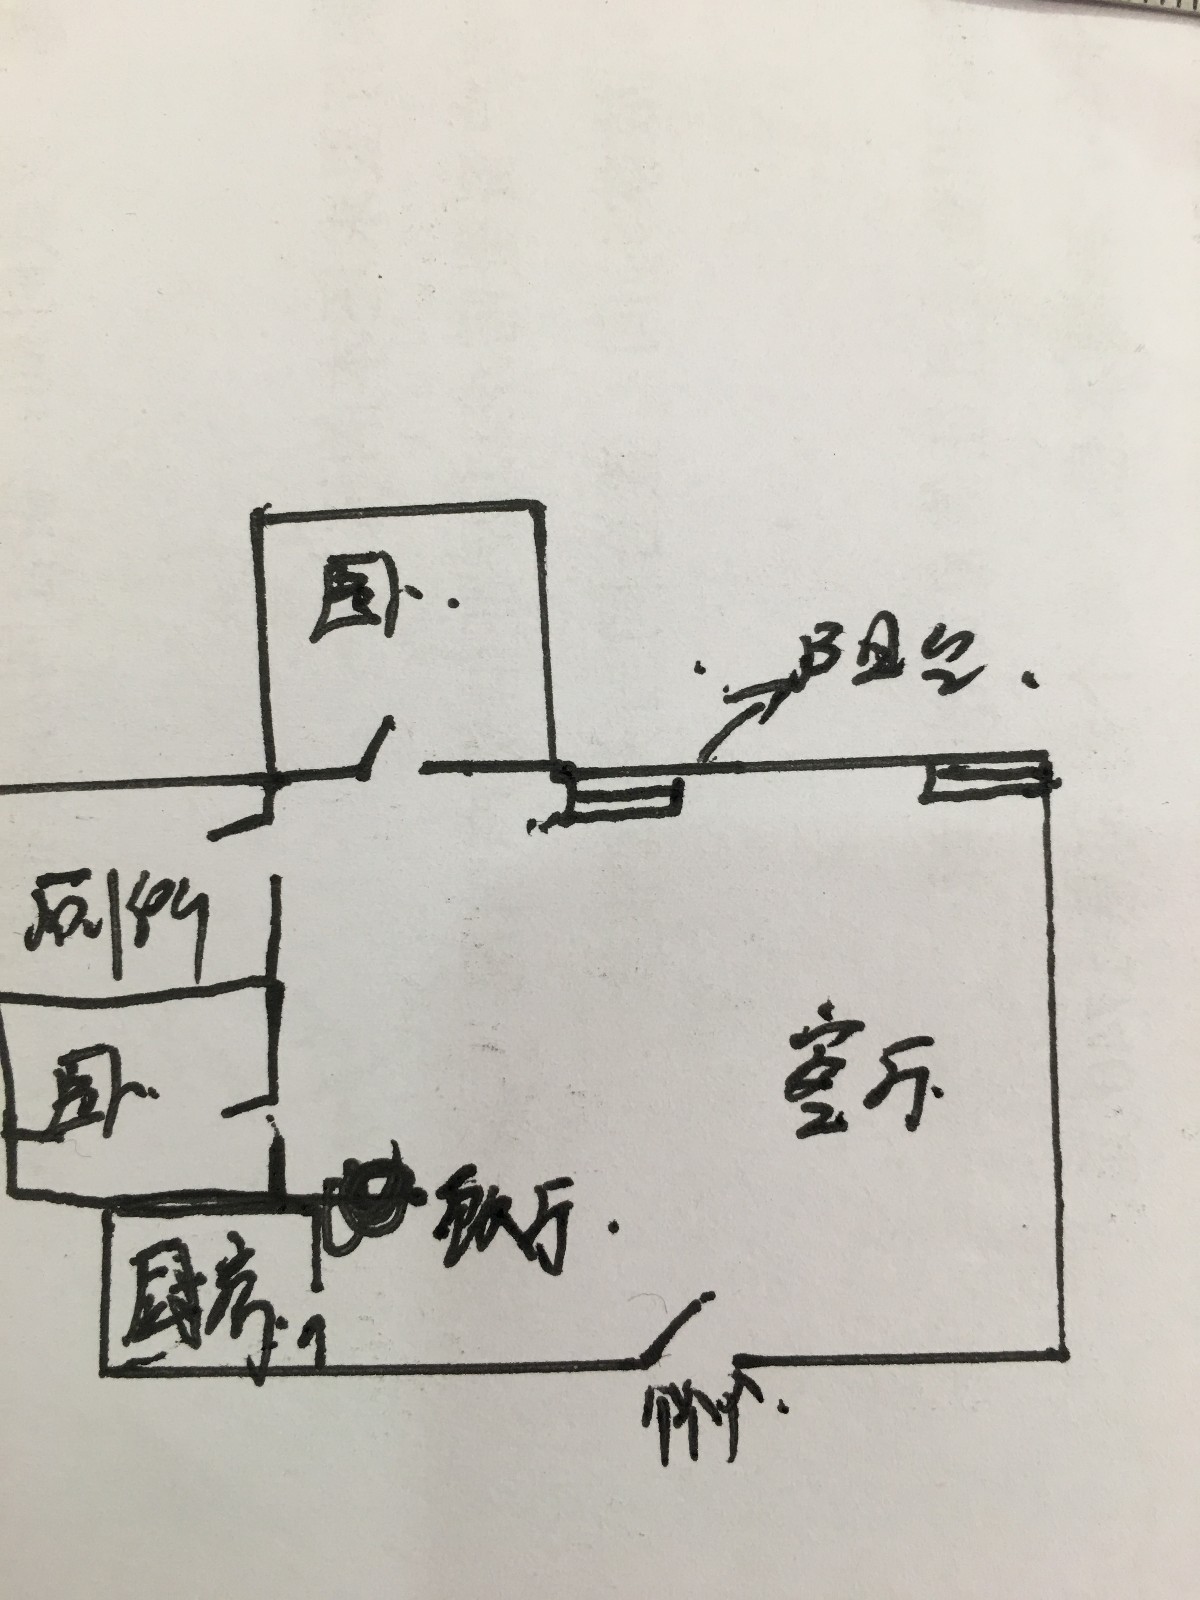 卧
阳台
厕所
客厅
卧
餐厅
厨房